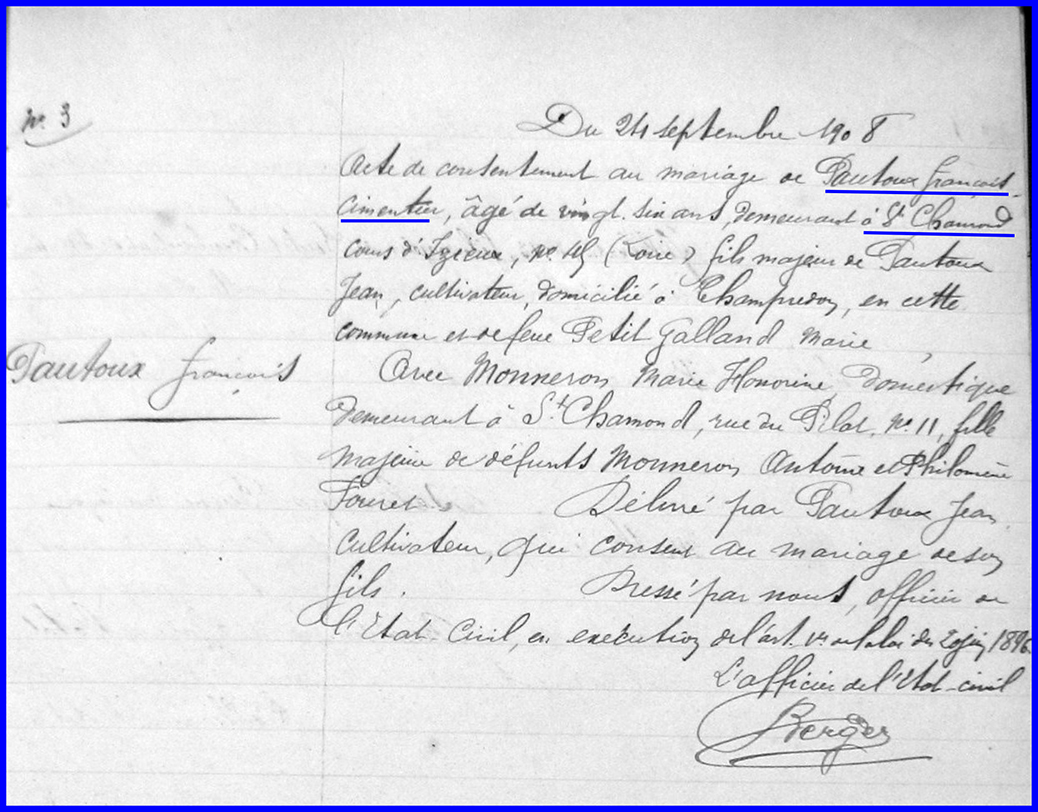 N° 3
Du 24 septembre 1908
Acte de consentement au mariage de Pautoux françois
cimentier, âgé de vingt-six ans, demeurant à St Chamond
cours d'Izieux, n° (Loire) fils majeur de Pautoux
Jean, cultivateur, domicilié à en cette
commune et de feue Petit Galland Marie,
Pautoux françois
Avec Monneron Marie Honorine domestique
demeurant à St Chamond, rue du Pilat, N° 11, fille
majeure de défunts Monneron Antoine et Philomène
Délivré par Pautoux Jean
cultivateur, qui consent au mariage de son
fils. Dressé par nous, officier de
l'Etat Civil, en exécution de l'art. 1er de la loi du 20 juin 1896
L'officier de l'Etat-civil
Berger